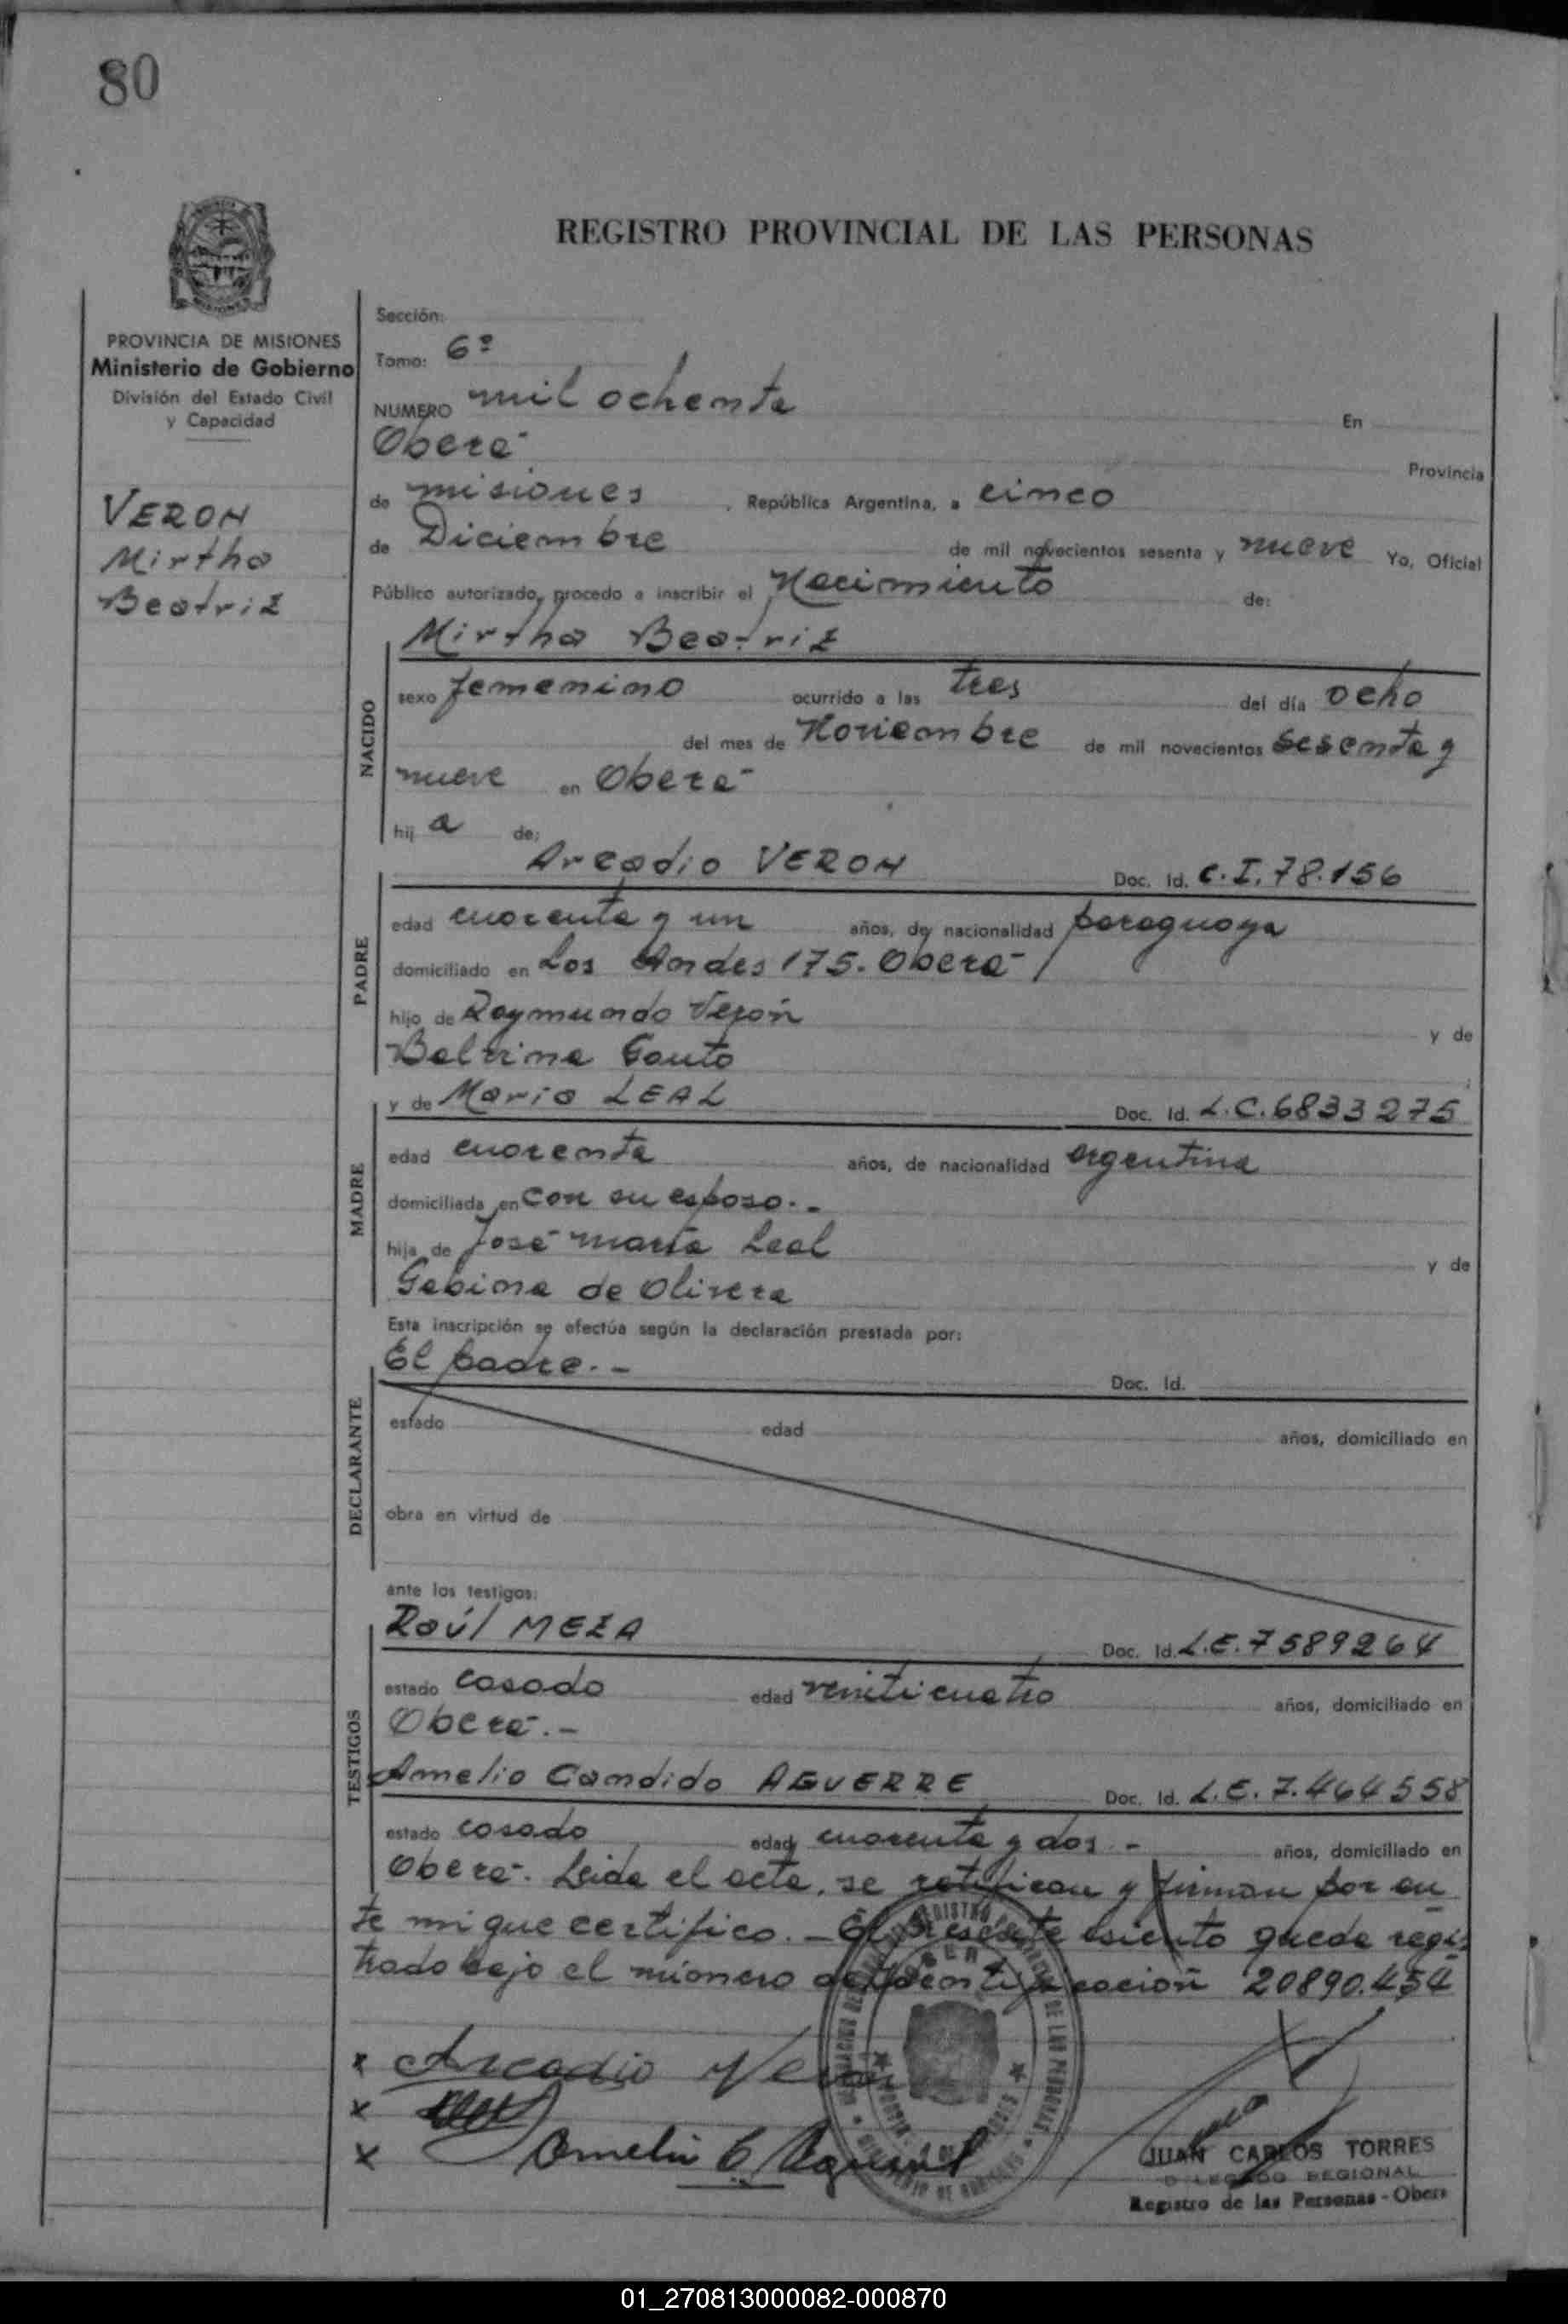 80
REGISTRO PROVINCIAL DE LAS PERSONAS
PROVINCIA DE MISIONES
Ministerio de Gobierno
División del Estado Civil
y Capacidad
VERON
Mirtha
Beatriz
Sección:
Tomo: 6º
NUMERO mil ochenta En
Oberá Provincia
de misiones, República Argentina, a cinco
de Diciembre de mil novecientos sesenta y nueve Yo, Oficial
Público autorizado, procedo a inscribir el Nacimiento de:
Mirtha Beatriz
NACIDO
sexo femenino ocurrido a las tres del día ocho
del mes de Noviembre de mil novecientos sesenta y
nueve en Oberá
hij a de:
Arcadio VERON Doc. Id. C.I. 78.156
PADRE
edad cuarenta y un años, de nacionalidad paraguaya
domiciliado en Los Andes 175. Oberá
hijo de Raymundo Verón y de
Balbina Gauto
y de Maria LEAL Doc. Id. L.C. 6833275
MADRE
edad cuarenta años, de nacionalidad argentina
domiciliada en con su esposo.-
hija de José maría Leal y de
Gabina de Olivera
Esta inscripción se efectúa según la declaración prestada por:
El padre.- Doc. Id.
DECLARANTE
estado edad años, domiciliado en
obra en virtud de
ante los testigos:
Raúl MEZA Doc. Id. L.E. 7589264
TESTIGOS
estado casado edad veniticuatro años, domiciliado en
Oberá.-
Amelio Candido AGUERRE Doc. Id. L.E. 7.464558
estado casado edad cuarenta y dos.- años, domiciliado en
Oberá. Leida el acta, se ratifican y firman por an
te mi que certifico.- El presente asiento queda regis
trado bajo el número de identificación 20890.454
x Arcadio Veron
x
x Amelio C Aguerre
JUAN CARLOS TORRES
DELEGADO REGIONAL
Registro de las Personas - Obera
01_270813000082-000870